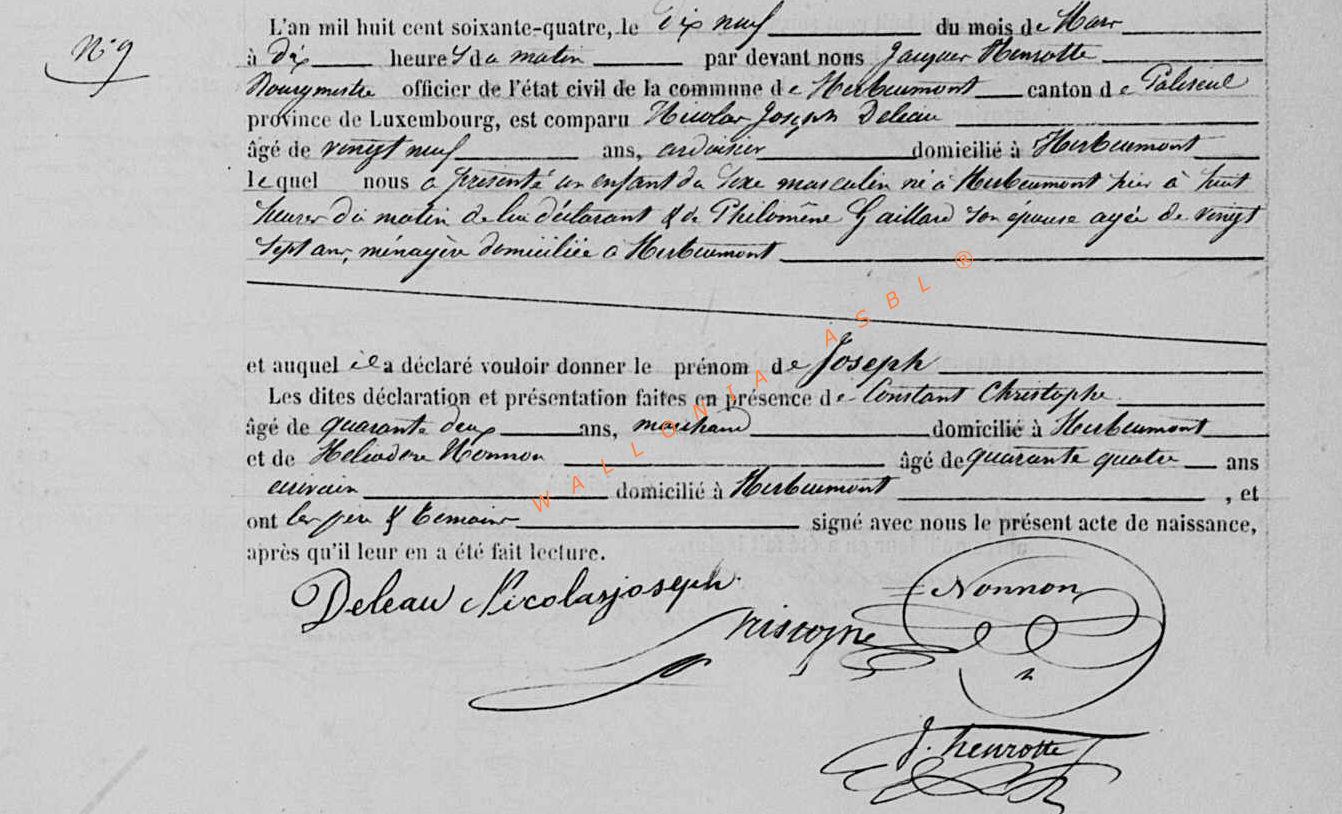 N° 9
L'an mil huit cent soixante-quatre, le dix neuf du mois de Mars
à dix heures du matin par devant nous Jacques Henrotte
Bourgmestre officier de l'état civil de la commune de Herbeumont canton de Paliseul
province de Luxembourg, est comparu Nicolas Joseph Deleau
âgé de vingt neuf ans, ardoisier domicilié à Herbeumont
lequel nous a présenté un enfant du sexe masculin né à Herbeumont hier à huit
heures du matin de lui déclarant & de Philomène Gaillard son épouse agée de vingt
sept ans, ménagère domiciliée à Herbeumont
et auquel il a déclaré vouloir donner le prénom de Joseph
Les dites déclaration et présentation faites en présence de Constant Christophe
âgé de quarante deux ans, marchand domicilié à Herbeumont
et de Heliodore Nonnon âgé de quarante quatre ans
domicilié à Herbeumont , et
ont les père & temoins signé avec nous le présent acte de naissance,
après qu'il leur en a été fait lecture.
Deleau Nicolas joseph
Nonnon
J. henrotte
WALLONIA ASBL ®